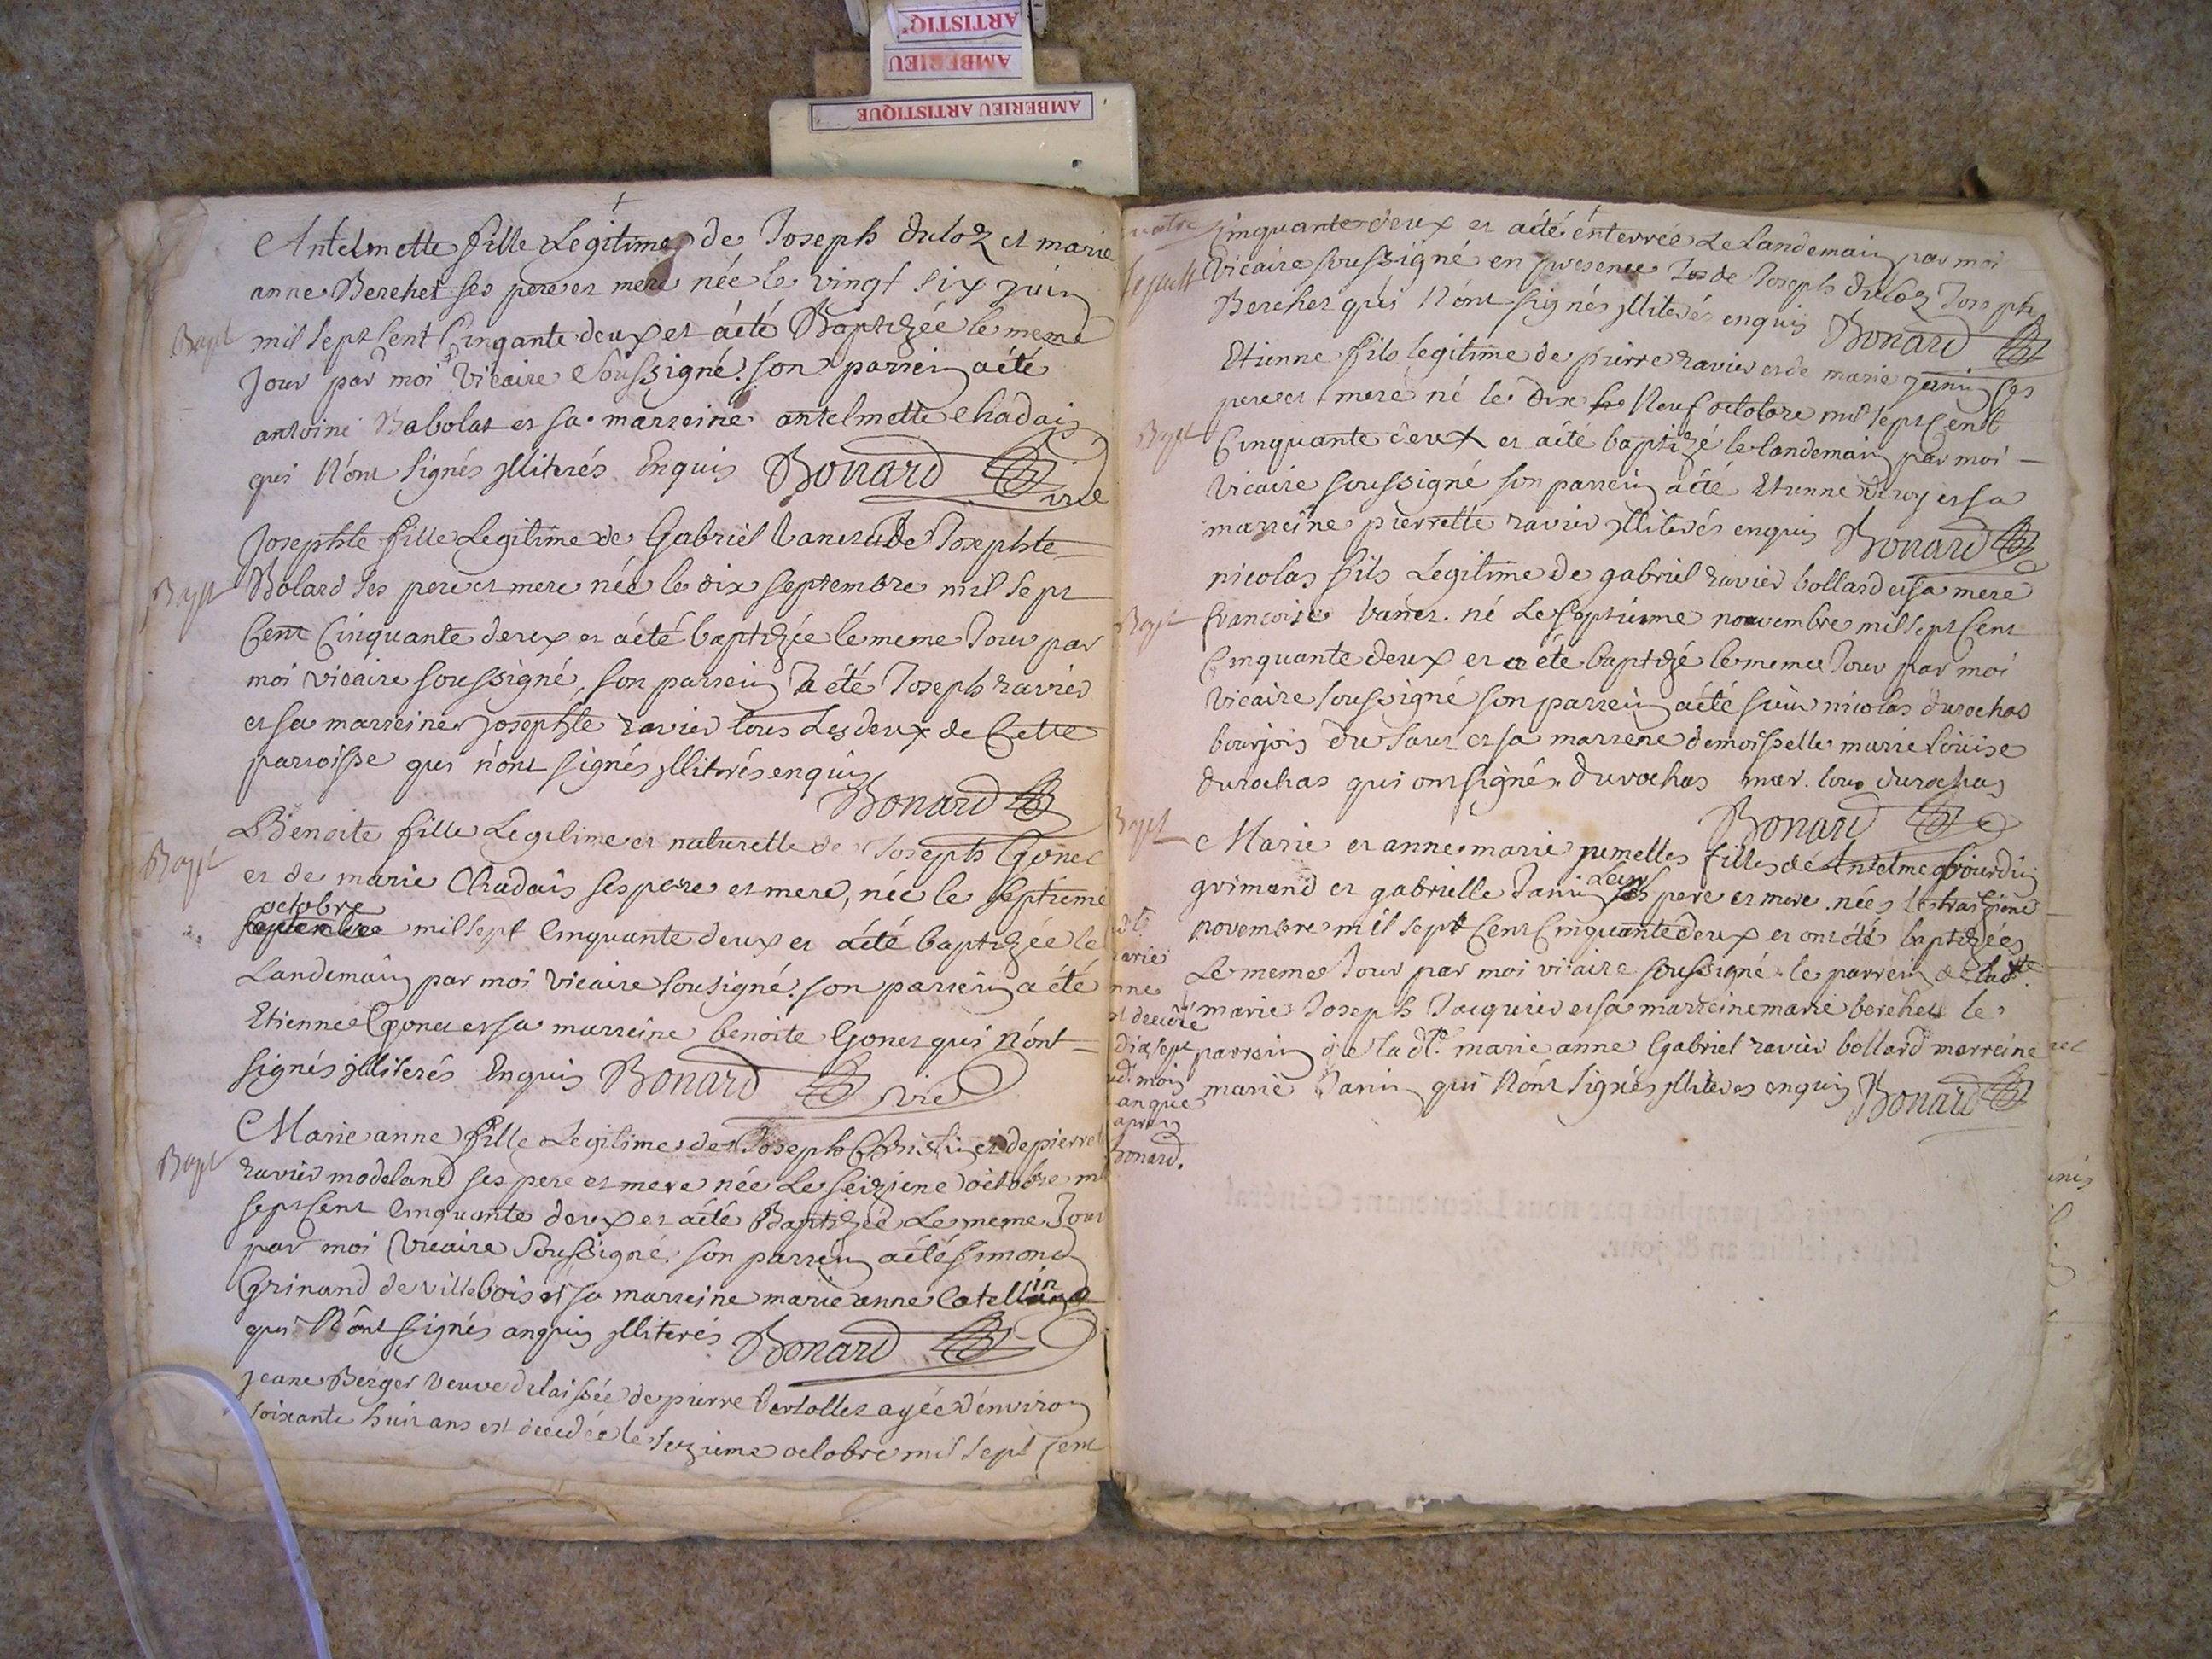 ARTISTIQ'
AMBERIEU
AMBERIEU ARTISTIQUE
Antelmette fille Legitime de Joseph duloz et marie
anne Berchet ses pere et mere née le vingt six juin
Bapt
mil sept Cent Cinqante deux et a été Baptizée le meme
Jour par moi Vicaire Soussigné. son parrein a été
antoine Babolat et sa marreine antelmette Chadais
qui N'ont signés jlliterés Enquis Bonard vic
Josephte fille Legitime de Gabriel Vanet et de Josephte
Bapt
Bolard ses pere et mere née le dix septembre mil sept
Cent Cinquante deux et a été baptizée le meme Jour par
moi vicaire soussigné, son parrein a été Joseph ravier
et sa marreine josephte ravier tous Les deux de Cette
parroisse qui n'ont signés jlliterés enquis
Bonard
Benoite fille Legitime et naturelle de Joseph Gonet
Bapt
et de marie Chadais ses pere et mere, née le septieme
octobre
septembre mil sept Cinquante deux et a été baptizée le
Landemain par moi Vicaire sousigné. son parrein a été
Etienne Gonet et sa marreine benoite Gonet qui N'ont
signés jlliterés Enquis Bonard vic
Marie anne fille Legitime de Joseph Christin et de pierret
Bapt
ravier modeland ses pere et mere née Le seizieme octobre mil
sept Cent Cinquante deux et a été Baptizée Le meme Jour
par moi Vicaire Soussigné. son parrein a été simond
Grinand de villebois et sa marreine marie anne Catellin
qui N'ont signés anquis jlliterés Bonard
jeane Berger Veuve delaissée de pierre Vertollet agée d'environ
soixante huit ans est decedée le sezieme octobre mil sept Cent
Cinquante deux et a été enterrée Le Landemain par moi
Sepult
Vicaire soussigné en presence de Joseph duloz Joseph
Berchet qui N'ont signés jlliterés enquis Bonard
Etienne fils legitime de pierre ravier et de marie janin ses
pere et mere né le dix Neuf octobre mil sept Cent
Bapt
Cinquante deux et a été baptizé le landemain par moi
Vicaire soussigné son parrein a été Etienne et sa
marreine pierrette ravier jlliterés enquis Bonard
nicolas fils Legitime de gabriel ravier bollard et sa mere
Bapt
francoise Vanet. né Le septieme novembre mil sept Cent
Cinquante deux et a été baptizé le meme Jour par moi
Vicaire soussigné son parrein a été sieur nicolas durochas
bourjois et sa marrene demoisselle marie loüise
durochas qui ont signés. durochas mar. louise durochas
Bonard
Bapt
Marie et anne marie jumelles filles de Antelme Gourdin
grimand et gabrielle Janin Leur pere et mere. nées le traizieme
novembre mil sept Cent Cinquante deux et ont été baptizées
Le meme Jour par moi vicaire soussigné. le parrein de lad.te
marie Joseph Jacquier et sa marreine marie berchet le
parrein de lad.te marie anne Gabriel ravier bollard marreine
marie Janin qui N'ont signés jlliteres enquis Bonard
d.te
arie
nne
st decedée
dix sept
ud. mois
an que
apres
Bonard.